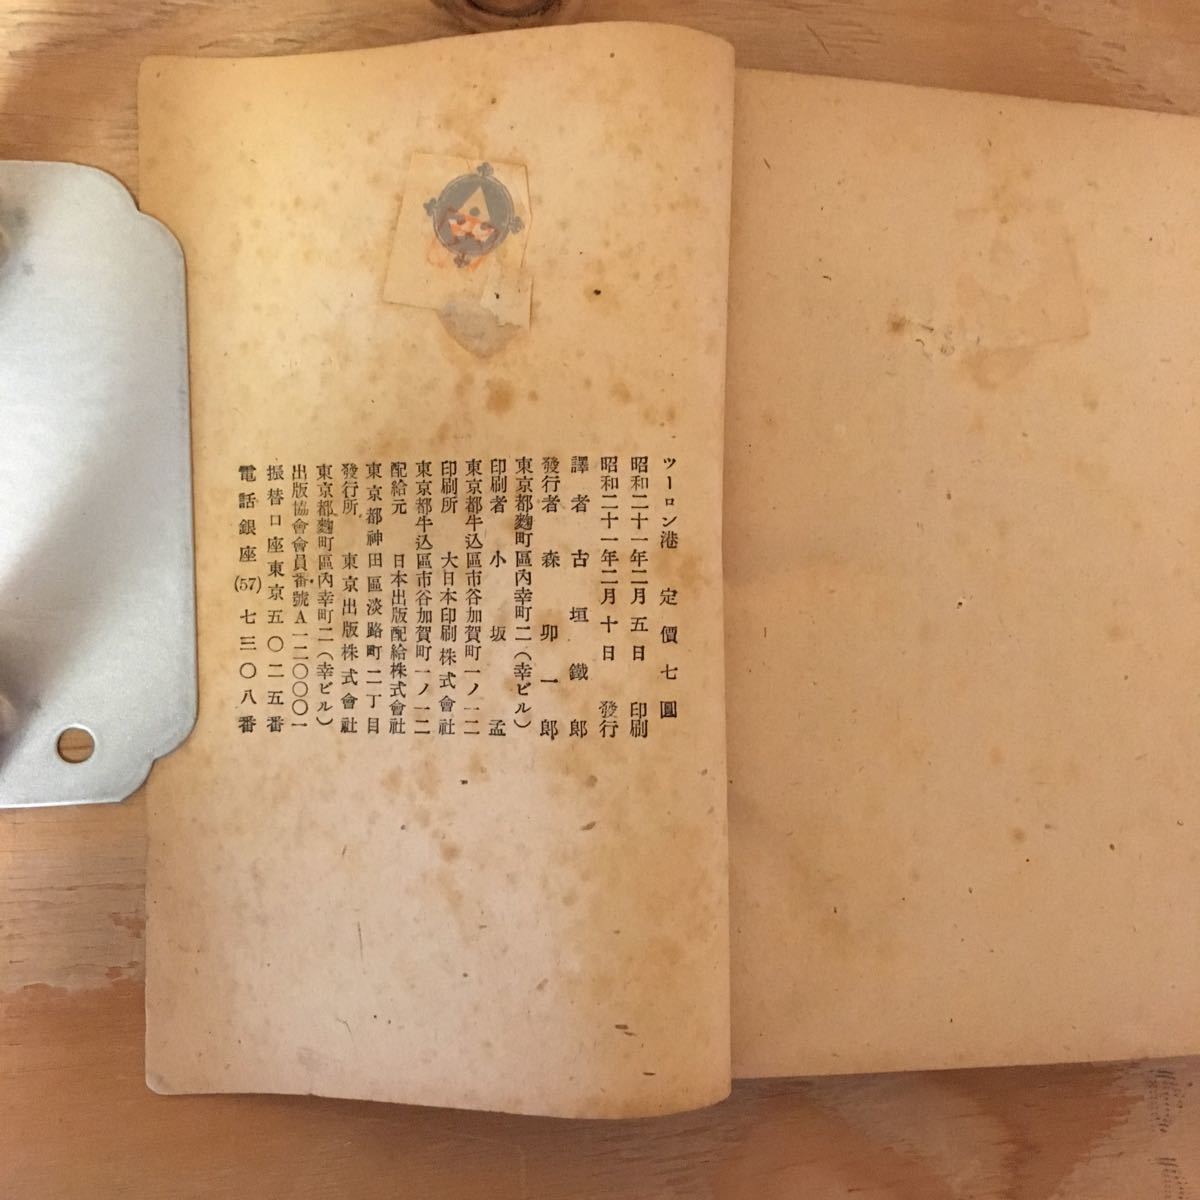 ツーロン港　定價七圓
昭和二十一年二月五日　印刷
昭和二十一年二月十日　發行
譯者　古垣鐵郎
發行者　森卯一郎
東京都麴町區內幸町二（幸ビル）
印刷者　小坂孟
東京都牛込區市谷加賀町一ノ一二
印刷所　大日本印刷株式會社
東京都牛込區市谷加賀町一ノ一二
配給元　日本出版配給株式會社
東京都神田區淡路町二丁目
發行所　東京出版株式會社
東京都麴町區內幸町二（幸ビル）
出版協會會員番號A一二〇〇〇一
振替口座東京五〇二五番
電話銀座(57)七三〇八番